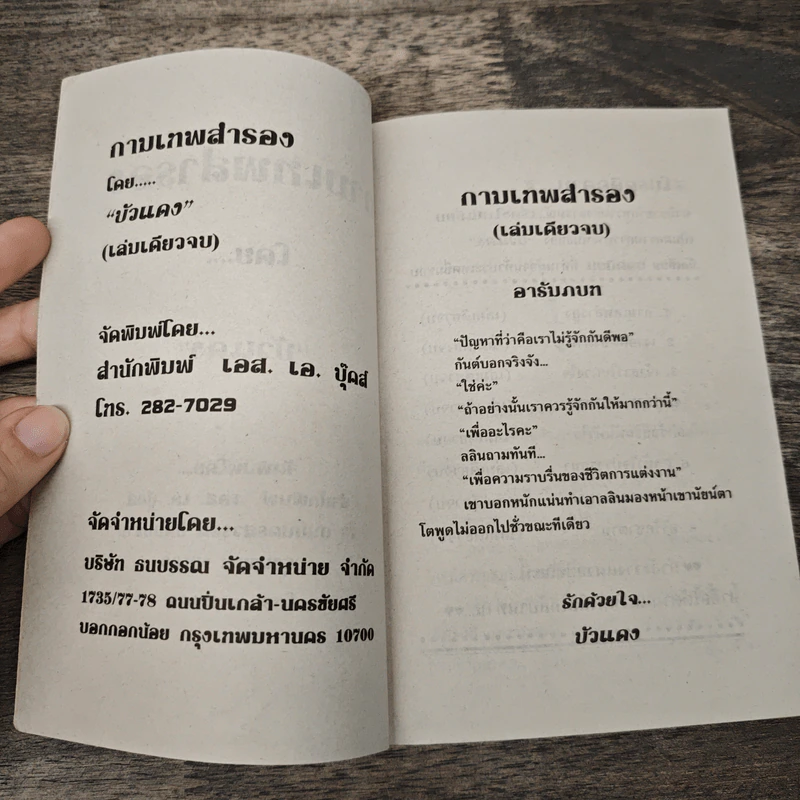 กามเทพสำรอง
โดย.....
“บัวแดง”
(เล่มเดียวจบ)
จัดพิมพ์โดย...
สำนักพิมพ์ เอส. เอ. บุ๊คส์
โทร. 282-7029
จัดจำหน่ายโดย...
บริษัท ธนบรรณ จัดจำหน่าย จำกัด
1735/77-78 ถนนปิ่นเกล้า-นครชัยศรี
บอกกอกน้อย กรุงเทพมหานคร 10700
กามเทพสำรอง
(เล่มเดียวจบ)
อารัมภบท
“ปัญหาที่ว่าคือเราไม่รู้จักกันดีพอ”
กันต์บอกจริงจัง...
“ใช่ค่ะ”
“ถ้าอย่างนั้นเราควรรู้จักกันให้มากกว่านี้”
“เพื่ออะไรคะ”
ลลินถามทันที...
“เพื่อความราบรื่นของชีวิตการแต่งงาน”
เขาบอกหนักแน่นทำเอาลลินมองหน้าเขานัยน์ตา
โตพูดไม่ออกไปชั่วขณะทีเดียว
รักด้วยใจ...
บัวแดง